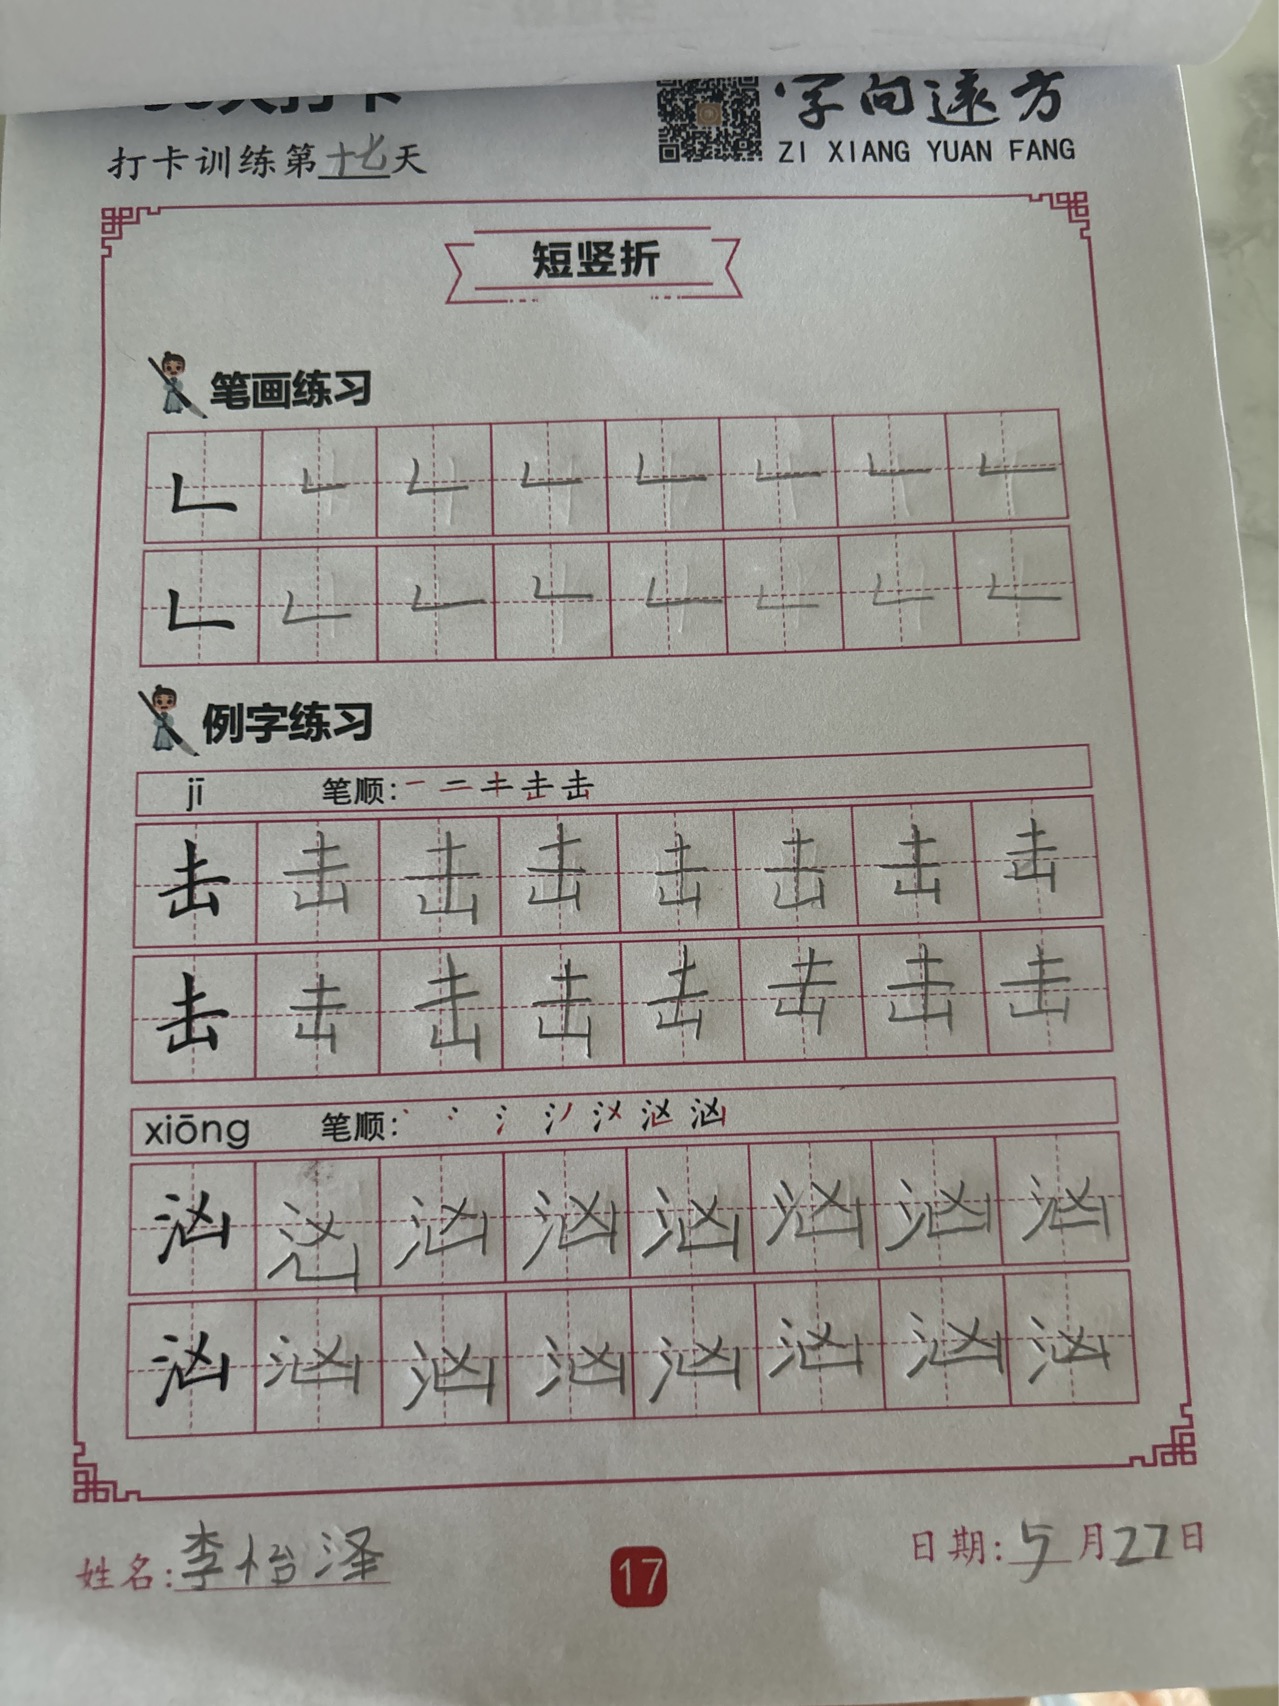 字向远方
打卡训练第十七天
ZI XIANG YUAN FANG
短竖折
笔画练习
例字练习
jī 笔顺: 一 二 キ 击 击
击 击 击 击 击 击 击 击
击 击 击 击 击 击 击 击
xiōng 笔顺: 汹
汹 汹 汹 汹 汹 汹 汹 汹
汹 汹 汹 汹 汹 汹 汹 汹
姓名: 李怡泽
17
日期: 5月27日